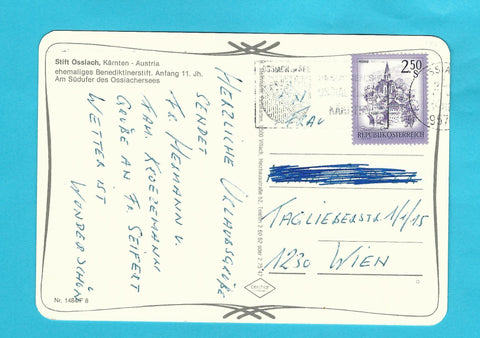 Stift Ossiach, Kärnten - Austria
ehemaliges Benediktinerstift. Anfang 11. Jh.
Am Südufer des Ossiachersees
HERZLICHE URLAUBSGRÜßE
SENDET
FR. HEIMANN U.
FAM. KROEZEMANN
GRÜßE AN FR. SEIFERT
WETTER IST
WUNDERSCHÖN
Nr. 1484 F 8
2.50 S
REPUBLIK ÖSTERREICH
FRAU
TAGLIEBERSTR 1/1/15
1230 WIEN